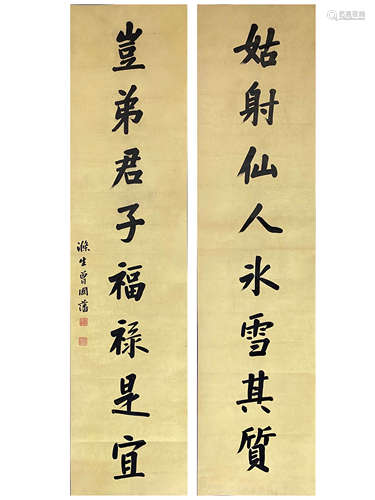 姑射仙人冰雪其質
豈弟君子福祿是宜
滌生曾國藩